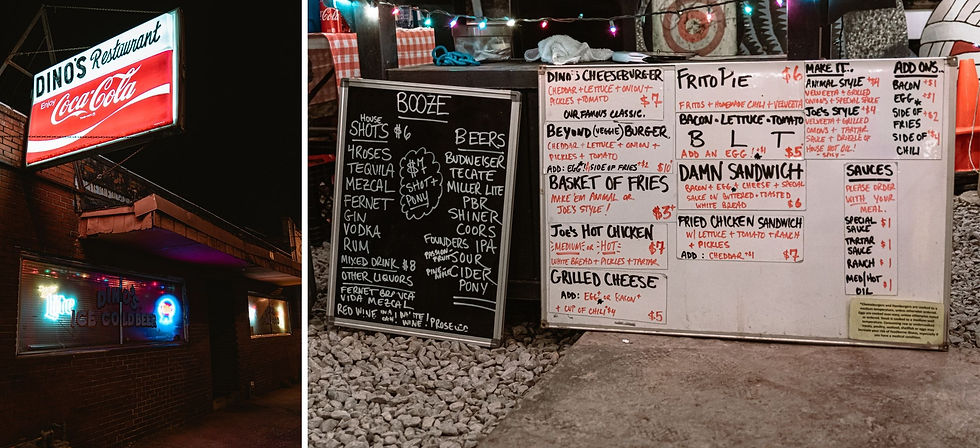 DINO'S Restaurant
Enjoy
Coca-Cola
Lite
DINO'S
ICE COLD BEER
BOOZE
House
SHOTS $6
4ROSES
TEQUILA
MEZCAL
FERNET
GIN
VODKA
RUM
MIXED DRINK $8
OTHER LIQUORS
VIDA MEZCAL
$7
SHOT+
PONY
BEERS
BUDWEISER
TECATE
MILLER LITE
PBR
SHINER
COORS
FOUNDERS IPA
SOUR
CIDER
PONY
DINO'S CHEESEBURGER
CHEDDAR + LETTUCE + ONION +
PICKLES + TOMATO
$7
OUR FAMOUS CLASSIC.
BEYOND (VEGGIE) BURGER
CHEDDAR + LETTUCE + ONION +
PICKLES + TOMATO
ADD: EGG $1/SIDE OF FRIES +$2 $10
BASKET OF FRIES
MAKE 'EM ANIMAL OR
JOE'S STYLE!
$3
JOE'S HOT CHICKEN
MEDIUM OR HOT
$7
WHITE BREAD + PICKLES + TARTAR
GRILLED CHEESE
ADD: EGG* OR BACON+
+ CUP OF CHILI $4
$5
FRITO PIE
$6
FRITOS + HOMEMADE CHILI + VELVEETA
BACON-LETTUCE-TOMATO
BLT
ADD AN EGG! +$1
$5
DAMN SANDWICH
BACON + EGG + CHEESE + SPECIAL
SAUCE ON BUTTERED + TOASTED
WHITE BREAD
$6
FRIED CHICKEN SANDWICH
W/ LETTUCE + TOMATO + RANCH
+ PICKLES
ADD: CHEDDAR +$1
$7
MAKE IT..
ANIMAL STYLE +$4
VELVEETA + GRILLED
ONIONS + SPECIAL SAUCE
JOE'S STYLE +$4
VELVEETA + GRILLED
ONIONS + TARTAR
SAUCE + DRIZZLE OF
HOUSE HOT OIL!
- SPICY -
ADD ONS..
BACON +$1
EGG* +$1
SIDE OF
FRIES
SIDE OF
CHILI
SAUCES
PLEASE ORDER
WITH YOUR
MEAL.
SPECIAL
SAUCE $1
TARTAR
SAUCE $1
RANCH $1
MED/HOT $1
OIL